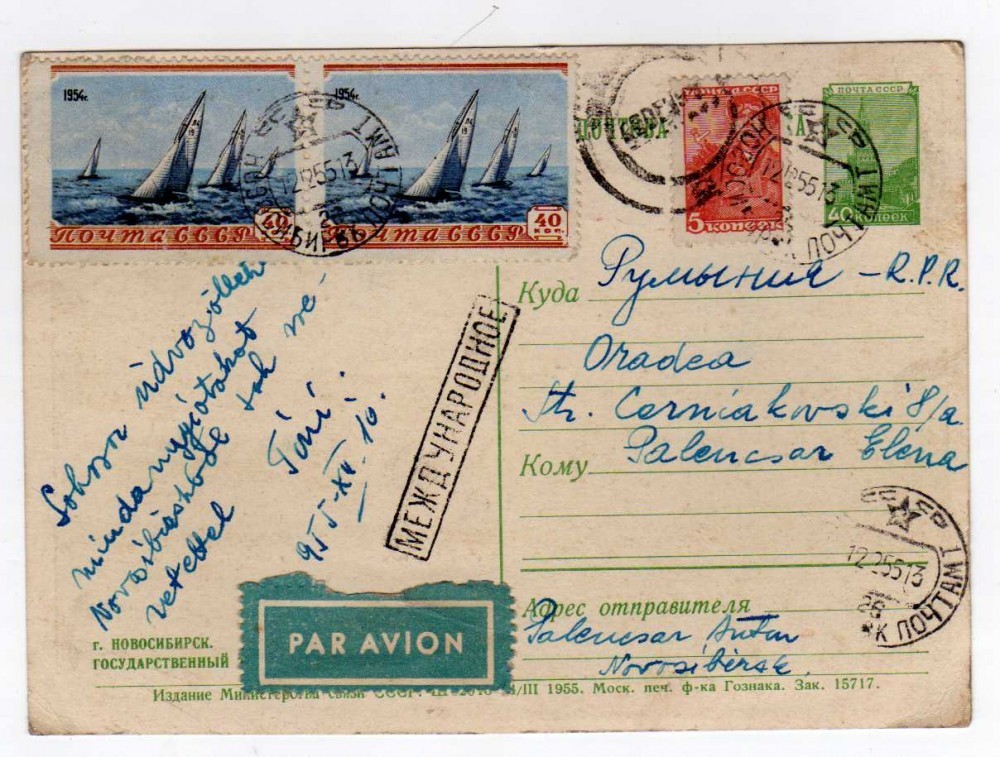 1954г.
40 КОП.
Почта СССР
1954г.
40 КОП.
Почта СССР
ПОЧТА СССР
5 КОПЕЕК
ПОЧТА СССР
40 КОПЕЕК
12 12 55 13
12 12 55 13
Куда Румыния – R.P.R.
Oradea
Str. Cerniakovski 8/a.
Кому Palencsar Elena
МЕЖДУНАРОДНОЕ
Sokszor üdvözöllek
mindannyiótokat
Novosibirszkből sok sze-
retettel
Tóni.
955-XII. 10.
12 12 55 13
ПОЧТАМТ
PAR AVION
Адрес отправителя
Palencsar Antun
Novosibirsk.
г. НОВОСИБИРСК.
ГОСУДАРСТВЕННЫЙ
Издание Министерства связи СССР. /III 1955. Моск. печ. ф-ка Гознака. Зак. 15717.